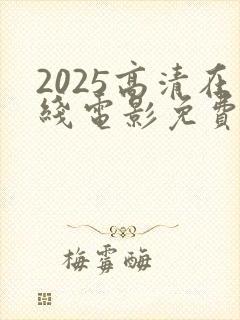 2025高清在
綫電影免費
梅霉酶